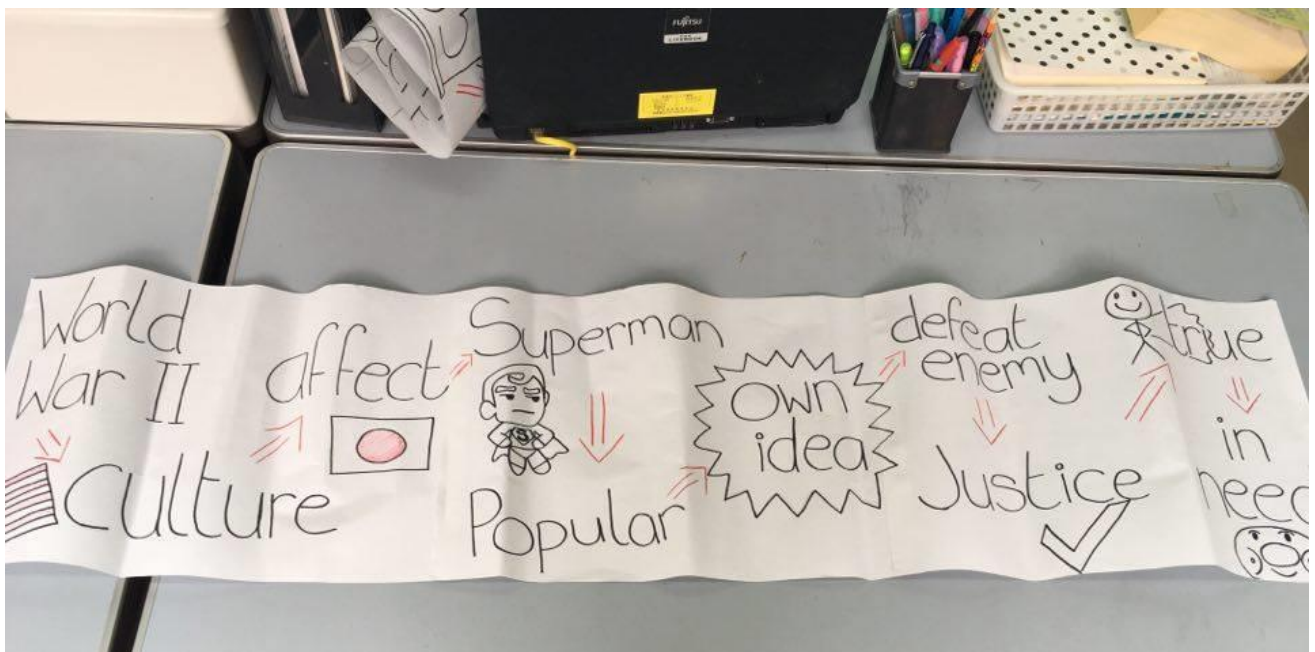 FUJITSU
LIFEBOOK
World
War II
Culture
affect
Superman
S
Popular
own
idea
defeat
enemy
Justice
true
in
need